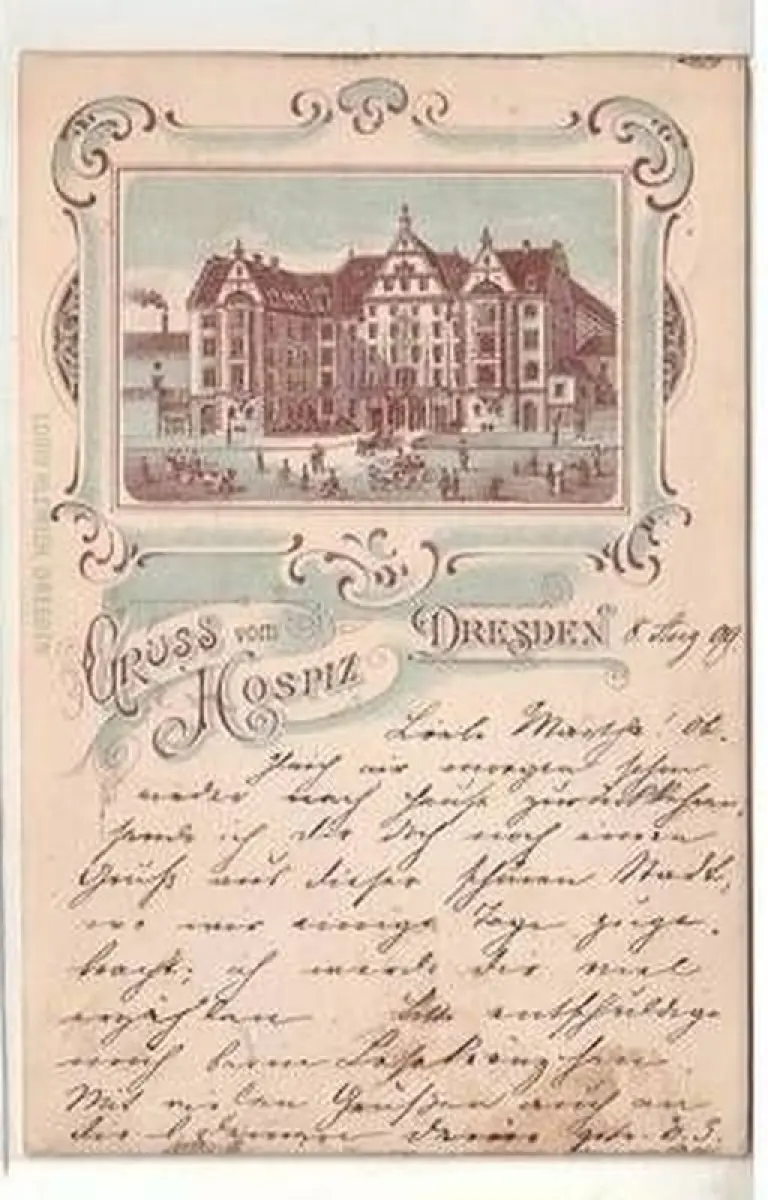 GRUSS vom
HOSPIZ
DRESDEN 8 Aug 99
Liebe Martha! Ob-
gleich wir morgen schon
wieder nach Hause zurückkehren,
sende ich dir doch noch einen
Gruß aus dieser schönen Stadt,
wo wir einige Tage zuge-
bracht; ich werde dir viel
erzählen. Bitte entschuldige
mich beim Lesekränzchen.
Mit vielen Grüßen auch an
deine